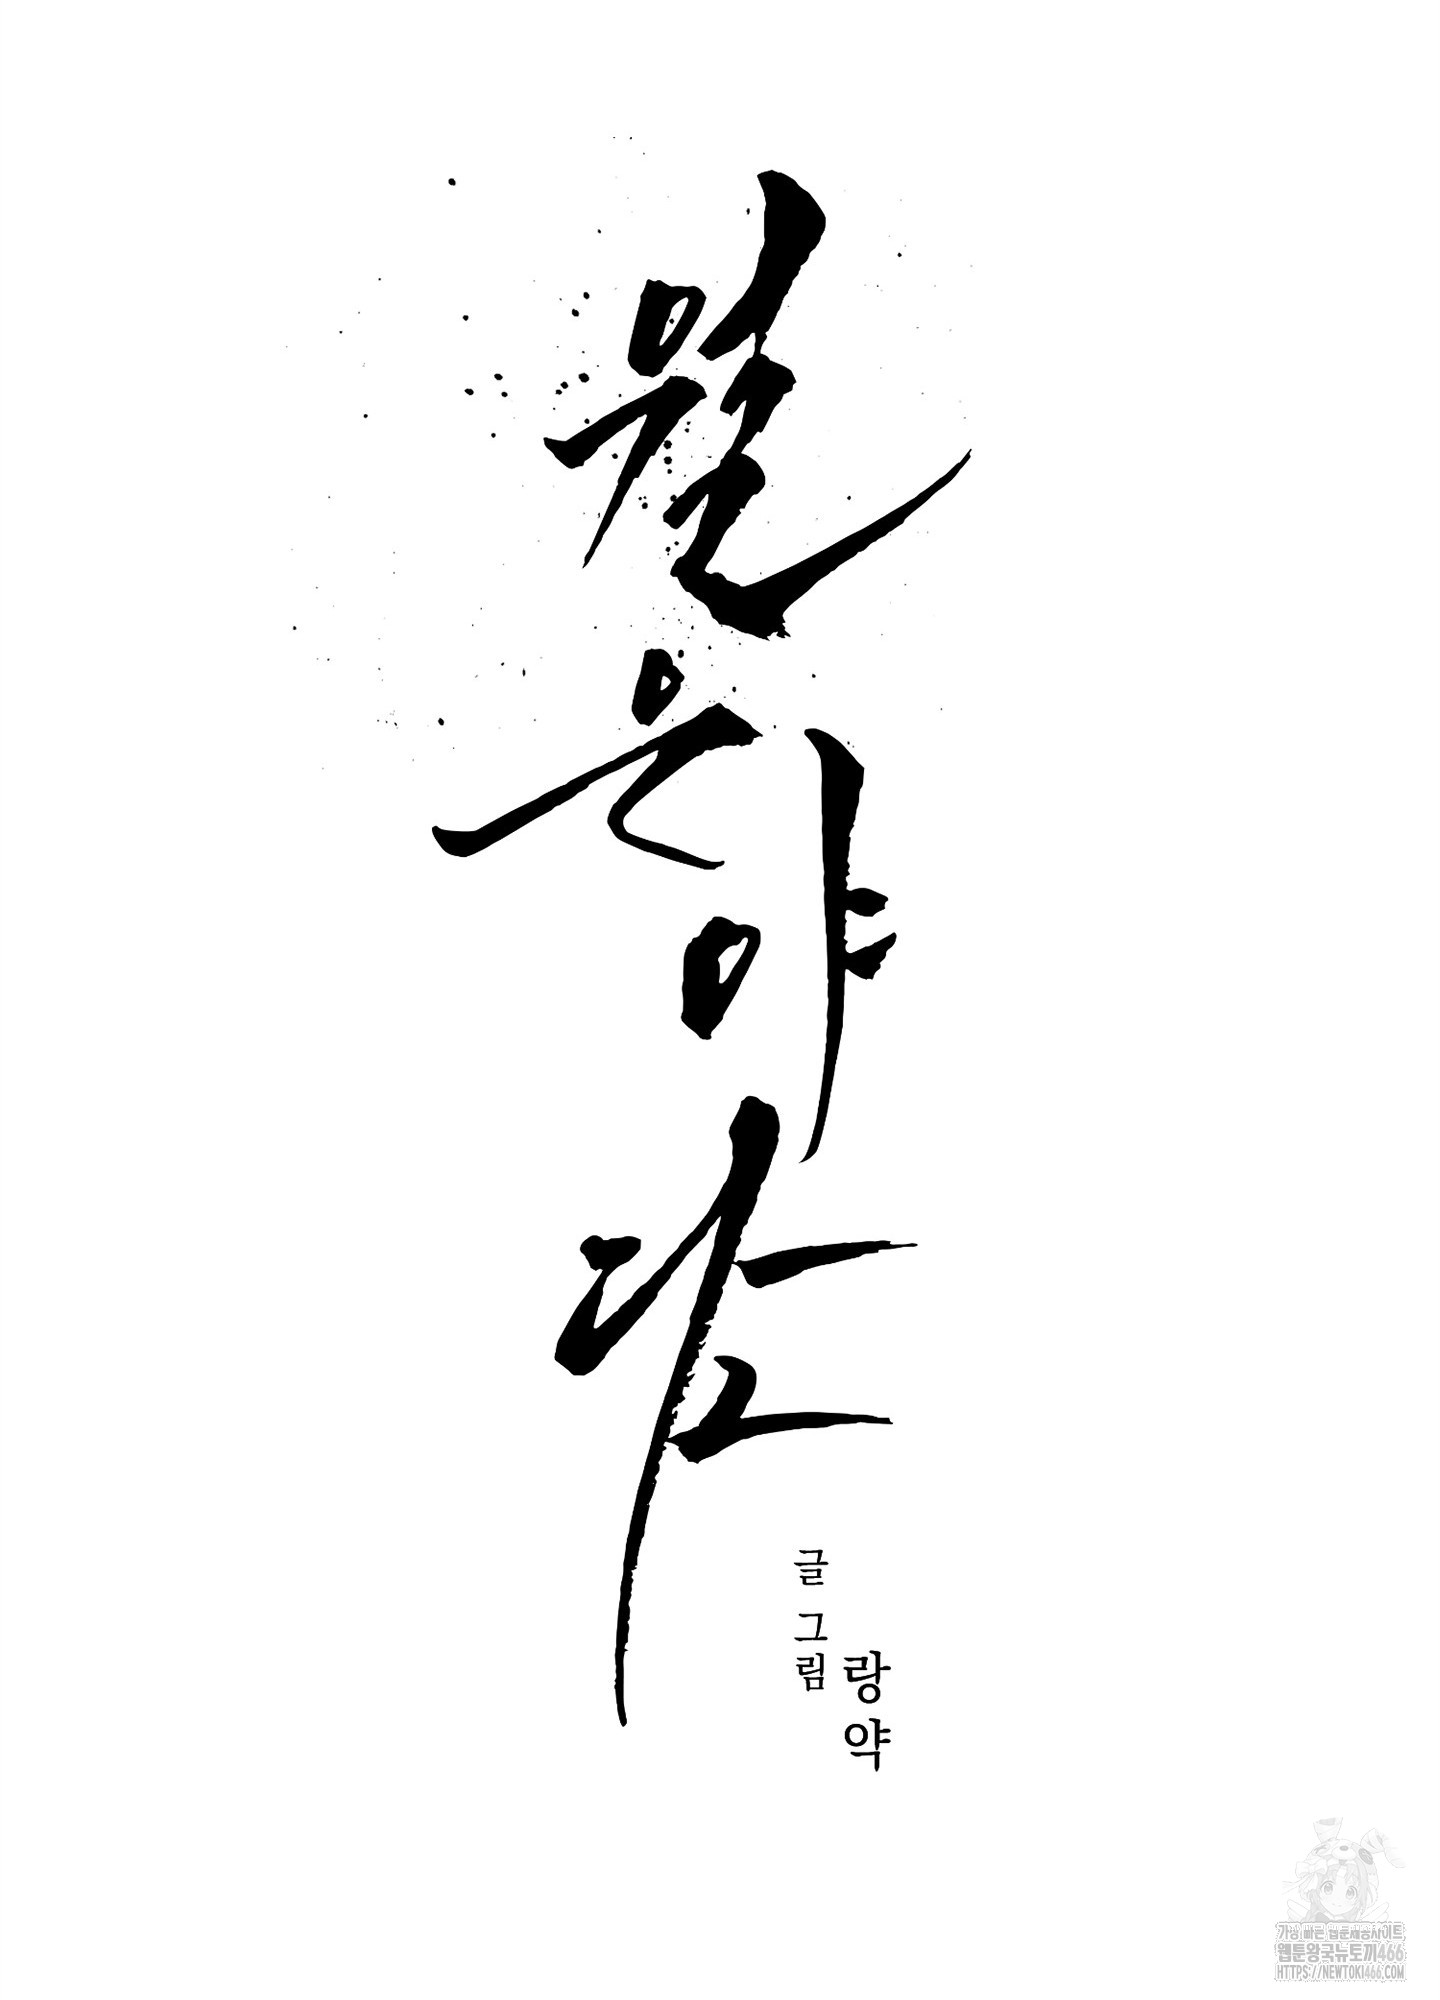 월은야담
글 그림
랑약
가장 빠른 웹툰제공사이트
웹툰왕국뉴토끼466
HTTPS://NEWTOKI466.COM